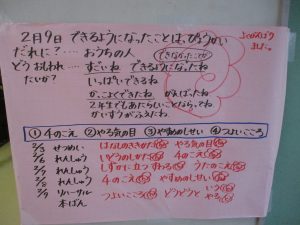 2月9日 できるようになったことはっぴょうかい
だれに?‥‥おうちの人 できなかったことが
どうおもわれ‥‥すごいね できるようになったね
たいか? いっぱいできるね
かっこよくできたね がんばったね
2年生でもあたらしいことならってね
かいすうがふえたね
①4のこえ ②やる気の目 ③やすめのしせい ④つよいこころ
2/3 せつめい はなしのききかた やる気の目
2/6 れんしゅう いどうのしかた 4のこえ
2/7 れんしゅう しずかに立つすわる うたのこえ
2/8 れんしゅう 4のこえ やすめのしせい
2/9 リハーサル つよいこころ どうどうと いう
本ばん やる